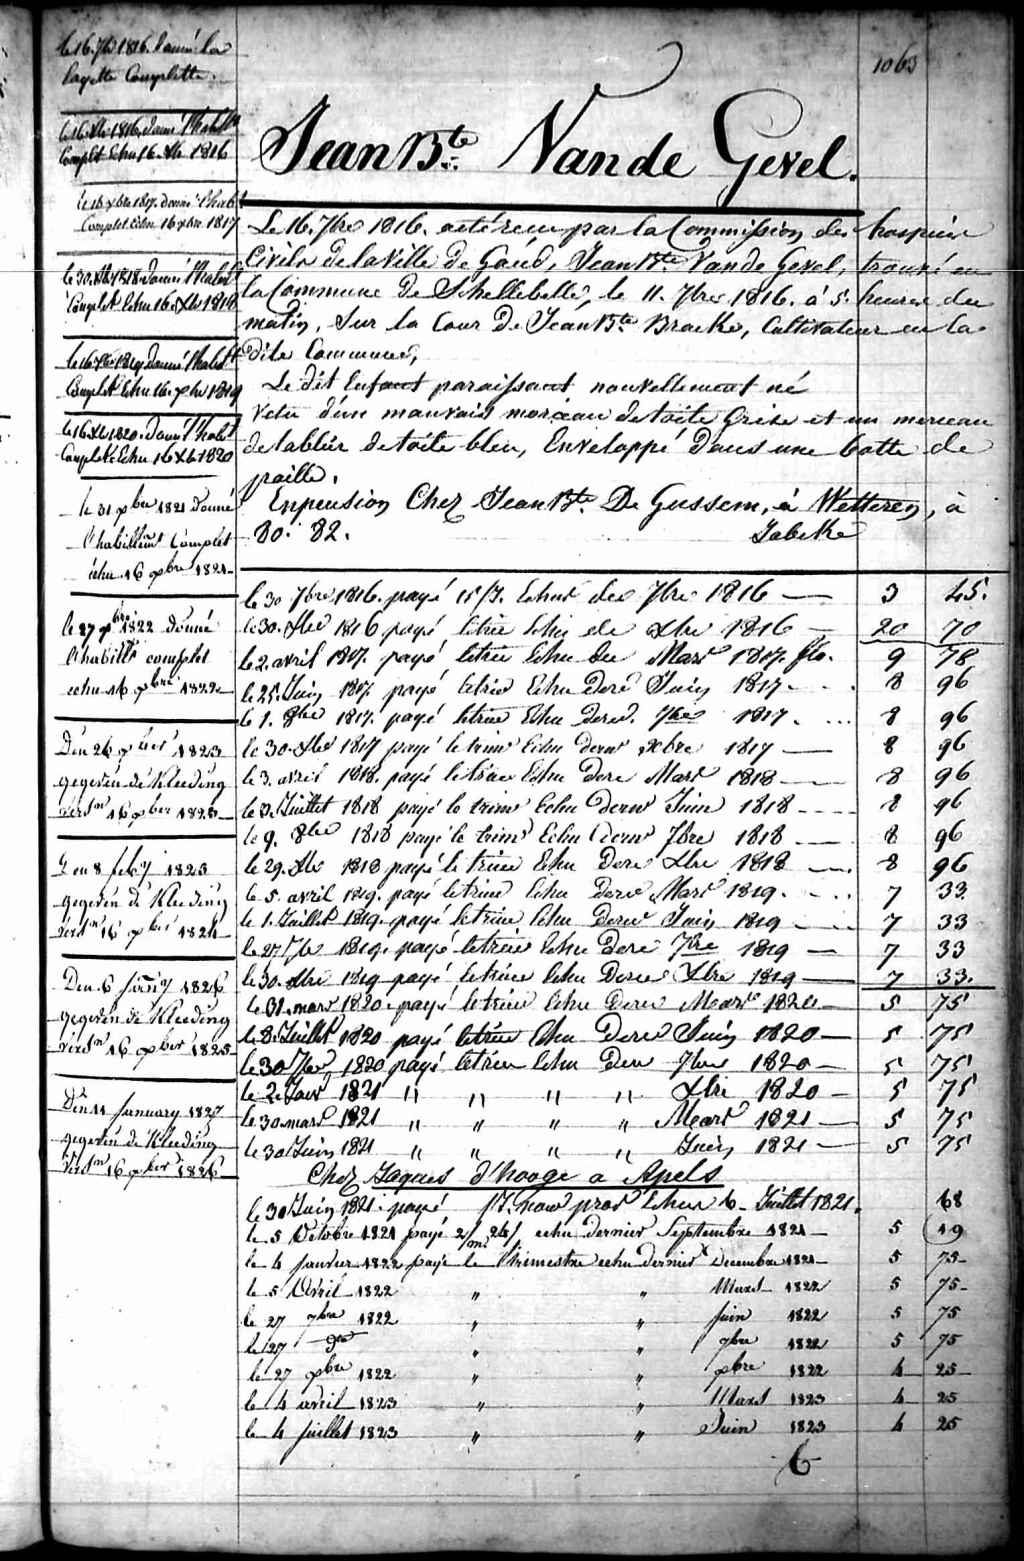 1063
Jean Bte Vande Gevel.
Le 16. 7bre 1816. a été reçu par la Commission des hospices
Civils de la Ville de Gand, Jean Bte Vande Gevel, trouvé en
la Commune de Schellebelle, le 11. 7bre 1816. à 5. heures du
matin, Sur la Cour de Jean Bte Bracke, Cultivateur en la
dite Commune,
Le dit Enfant paraissant nouvellement né
vetu d'un mauvais morceau de toile Grise et un morceau
de tablier de toile bleu, Enveloppé Dans une botte de
paille.
En pension Chez Jean Bte De Gussem, à Wetteren, à
80. 82.
le 30 7bre 1816. payé Echus des 7bre 1816 — 3 45.
le 30. Xbre 1816 payé le trim Echu de Xbre 1816 — 20 70
le 2. avril 1817. payé le trim Echu de Mars 1817. flo. 9 78
le 25. Juin 1817. payé le trim Echu Dere Juin 1817 8 96
le 1. 8bre 1817. payé le trim Echu Derer. 7bre 1817. 8 96
le 30. Xbre 1817 payé le trim Echu derer Xbre 1817 — 8 96
le 3. avril 1818. payé le trim Echu Dere Mars 1818 8 96
le 3. Juillet 1818 payé le trim Echu Derer Juin 1818 8 96
le 9. 8bre 1818 payé le trim Echu derer 7bre 1818 8 96
le 29. Xbre 1818 payé le trim Echu Dere Xbre 1818 8 96
le 5. avril 1819. payé le trim Echu Derer Mars 1819. 7 33
le 1. Juillet 1819. payé le trim Echu Derer Juin 1819 7 33
le 27 7bre 1819. payé le trim Echu Dere 7bre 1819 — 7 33
le 30. Xbre 1819 payé le trim Echu Derer Xbre 1819 — 7 33.
le 31. mars 1820. payé le trim Echu Derer Mars 1820 5 75
le 8. Juillet 1820 payé le trim Echu Derer Juin 1820 — 5 75
le 30 7bre 1820 payé le trim Echu Derer 7bre 1820 — 5 75
le 2 Janr 1821 " " " " Xbre 1820 — 5 75
le 30 mars 1821 " " " " Mars 1821 — 5 75
le 30 Juin 1821 " " " " Juin 1821 — 5 75
Chez Jaques d'hooge a Apels
le 30 Juin 1821. payé Echus 6 Juillet 1821. 68
le 5 Octobre 1821 payé echu dernier Septembre 1821 — 5 19
le 4 janvier 1822 payé le trimestre echu dernier Decembre 1821 — 5 75 —
le 5 Avril 1822 " " Mars 1822 5 75 —
le 27 7bre 1822 " " juin 1822 5 75
le 27 do " " 7bre 1822 5 75
le 27 Xbre 1822 " " Xbre 1822 4 25 —
le 4 avril 1823 " " Mars 1823 4 25
le 4 juillet 1823 " " Juin 1823 4 25
le 16. 7bre 1816. Donné la
layette Complette.
le 16. Xbre 1816. donné l'habillt
Complet Echu 16. Xbre 1816
le 16 Xbre 1817. donné l'habt
Complet Echu 16 Xbre 1817
le 30. Xbre 1818. donné l'habillt
Complet Echu 16. Xbre 1818
le 16 Xbre 1819. donné l'habillt
Complet Echu 16. Xbre 1819
le 16 Xbre 1820. Donné l'habillt
Complet Echu 16 Xbre 1820
le 31 Xbre 1821 Donné
l'habillemt Complet
échu 16 Xbre 1821 —
le 27 Xbre 1822 donné
l'habillt complet
echu 16 Xbre 1822 —
Den 26 Xber 1823
gegeven de Kleeding
verstn 16 Xber 1823 —
Den 8 febry 1825
gegeven de Kleeding
verstn 16 Xber 1824 —
Den 6 january 1826
gegeven de Kleeding
verstn 16 Xber 1825 —
Den 11 January 1827
gegeven de Kleeding
verstn 16 Xber 1826 —